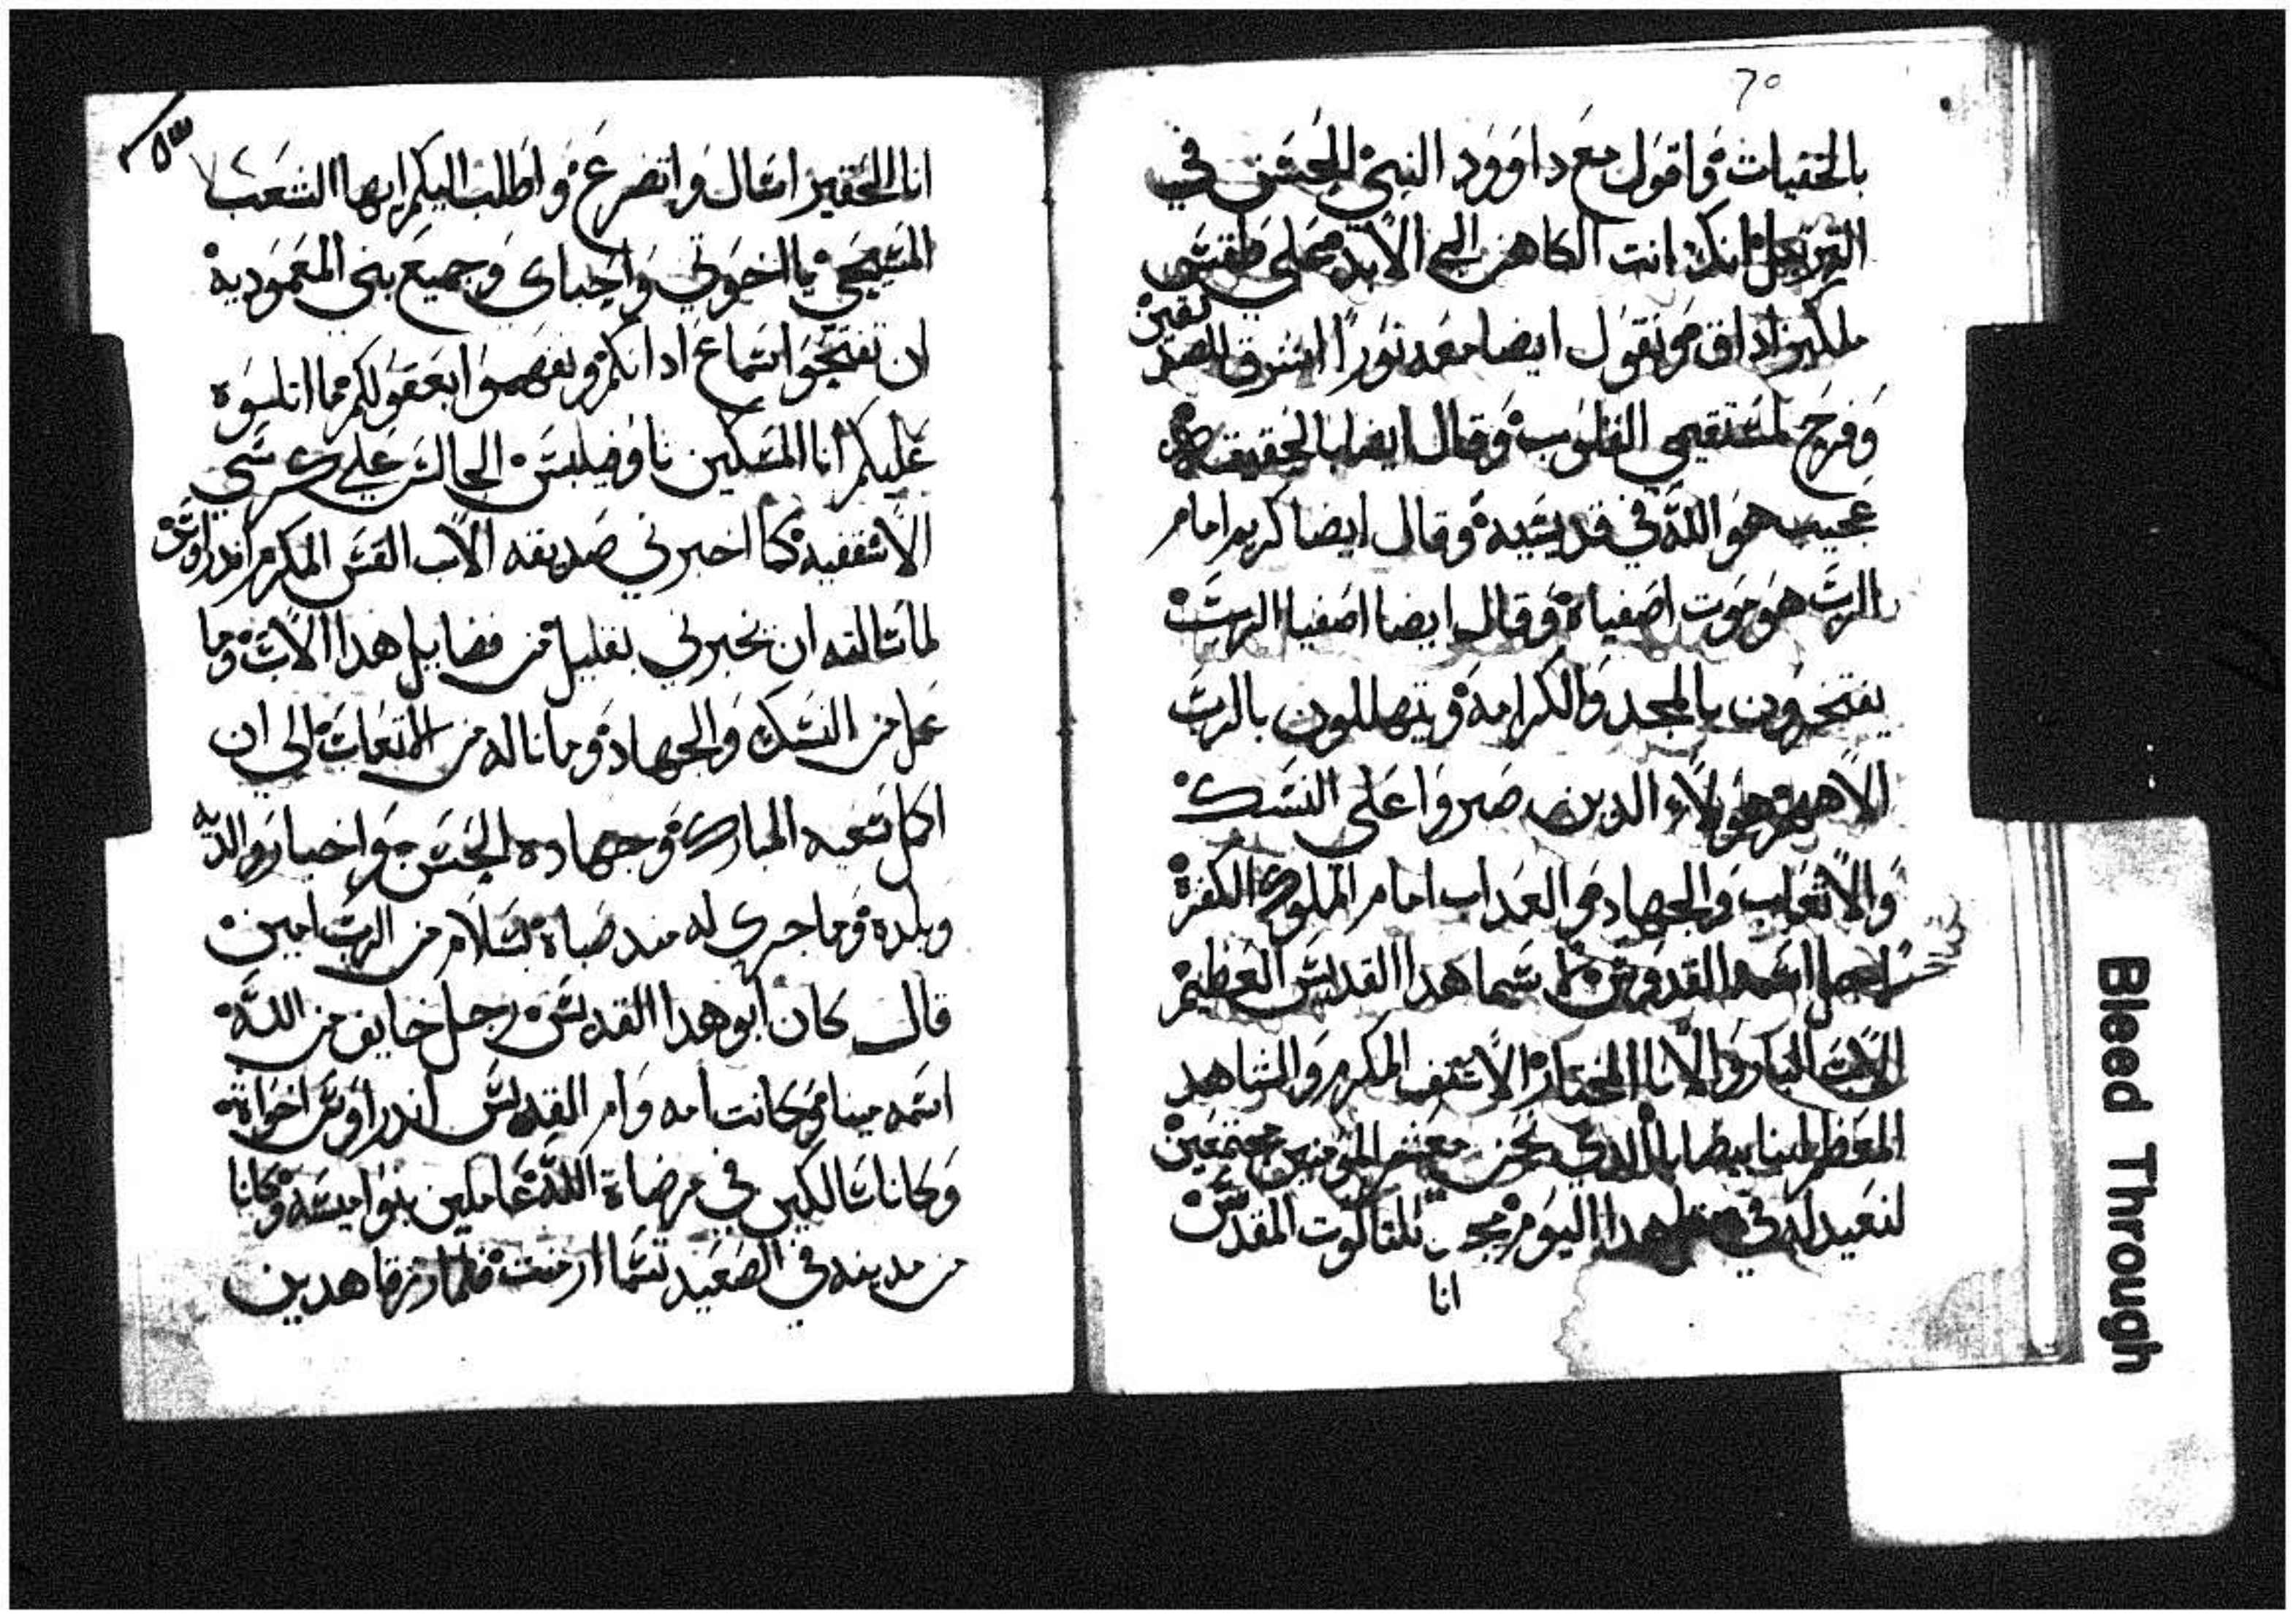 70
بالحقيات واقول مع داوود النبي الحسن في
الترتيل انك انت الكاهن الي الابد علي طقس
ملكيزاداق ونقول ايضا معه نورا اشرق للصديقين
وفرح لمستقيمي القلوب وقال ايضا بالحقيقه
عجيب هو الله في قديسيه وقال ايضا كريم امام
الرب هو موت اصفياه وقال ايضا اصفيا الرب
يفتخرون بالمجد والكرامه ويتهللون بالرب
الاههم هولاء الدين صبروا علي النسك
والاتعاب والجهاد والعداب امام الملوك الكفرة
اسمه القدوس سيما هدا القديس العظيم
الاب البار والانا المختار الاسقف المكرم والشاهد
المعظم انبا بيضابا الدي نحن معشر المومنين مجتمعين
لنعيد له في هدا اليوم بمجد تلتالوت المقدس
انا
انا الحقير اسال واتضرع واطلب اليكم ايها الشعب
المسيحي يا اخوتي واحباي وجميع بني المعمودية
ان تفتحوا اسماع ادانكم وتفهموا بعقولكم مما اتلوه
عليكم انا المسكين تاوضليس الجالس علي كرسي
الاسقفيه كما اخبرني صديقه الاب القس المكرم اندراوس
لما سالته ان يخبرني بقليل من فضايل هدا الاب وما
عمل من النسك والجهاد وما ناله من المتعاب الي ان
اكمل تعبه المبارك وجهاده الحسن واخبار والديه
وبلده وما جري له مند صباه بسلام من الرب امين
قال كان ابو هدا القديس رجل خايف من الله
اسمه مينا وكانت امه وام القديس اندراوس اخواة
وكانا سالكين في مرضاة الله عاملين بنواميسه وكانا
من مدينه في الصعيد تسما ارمنت فلما رزقا هدين
Bleed Through